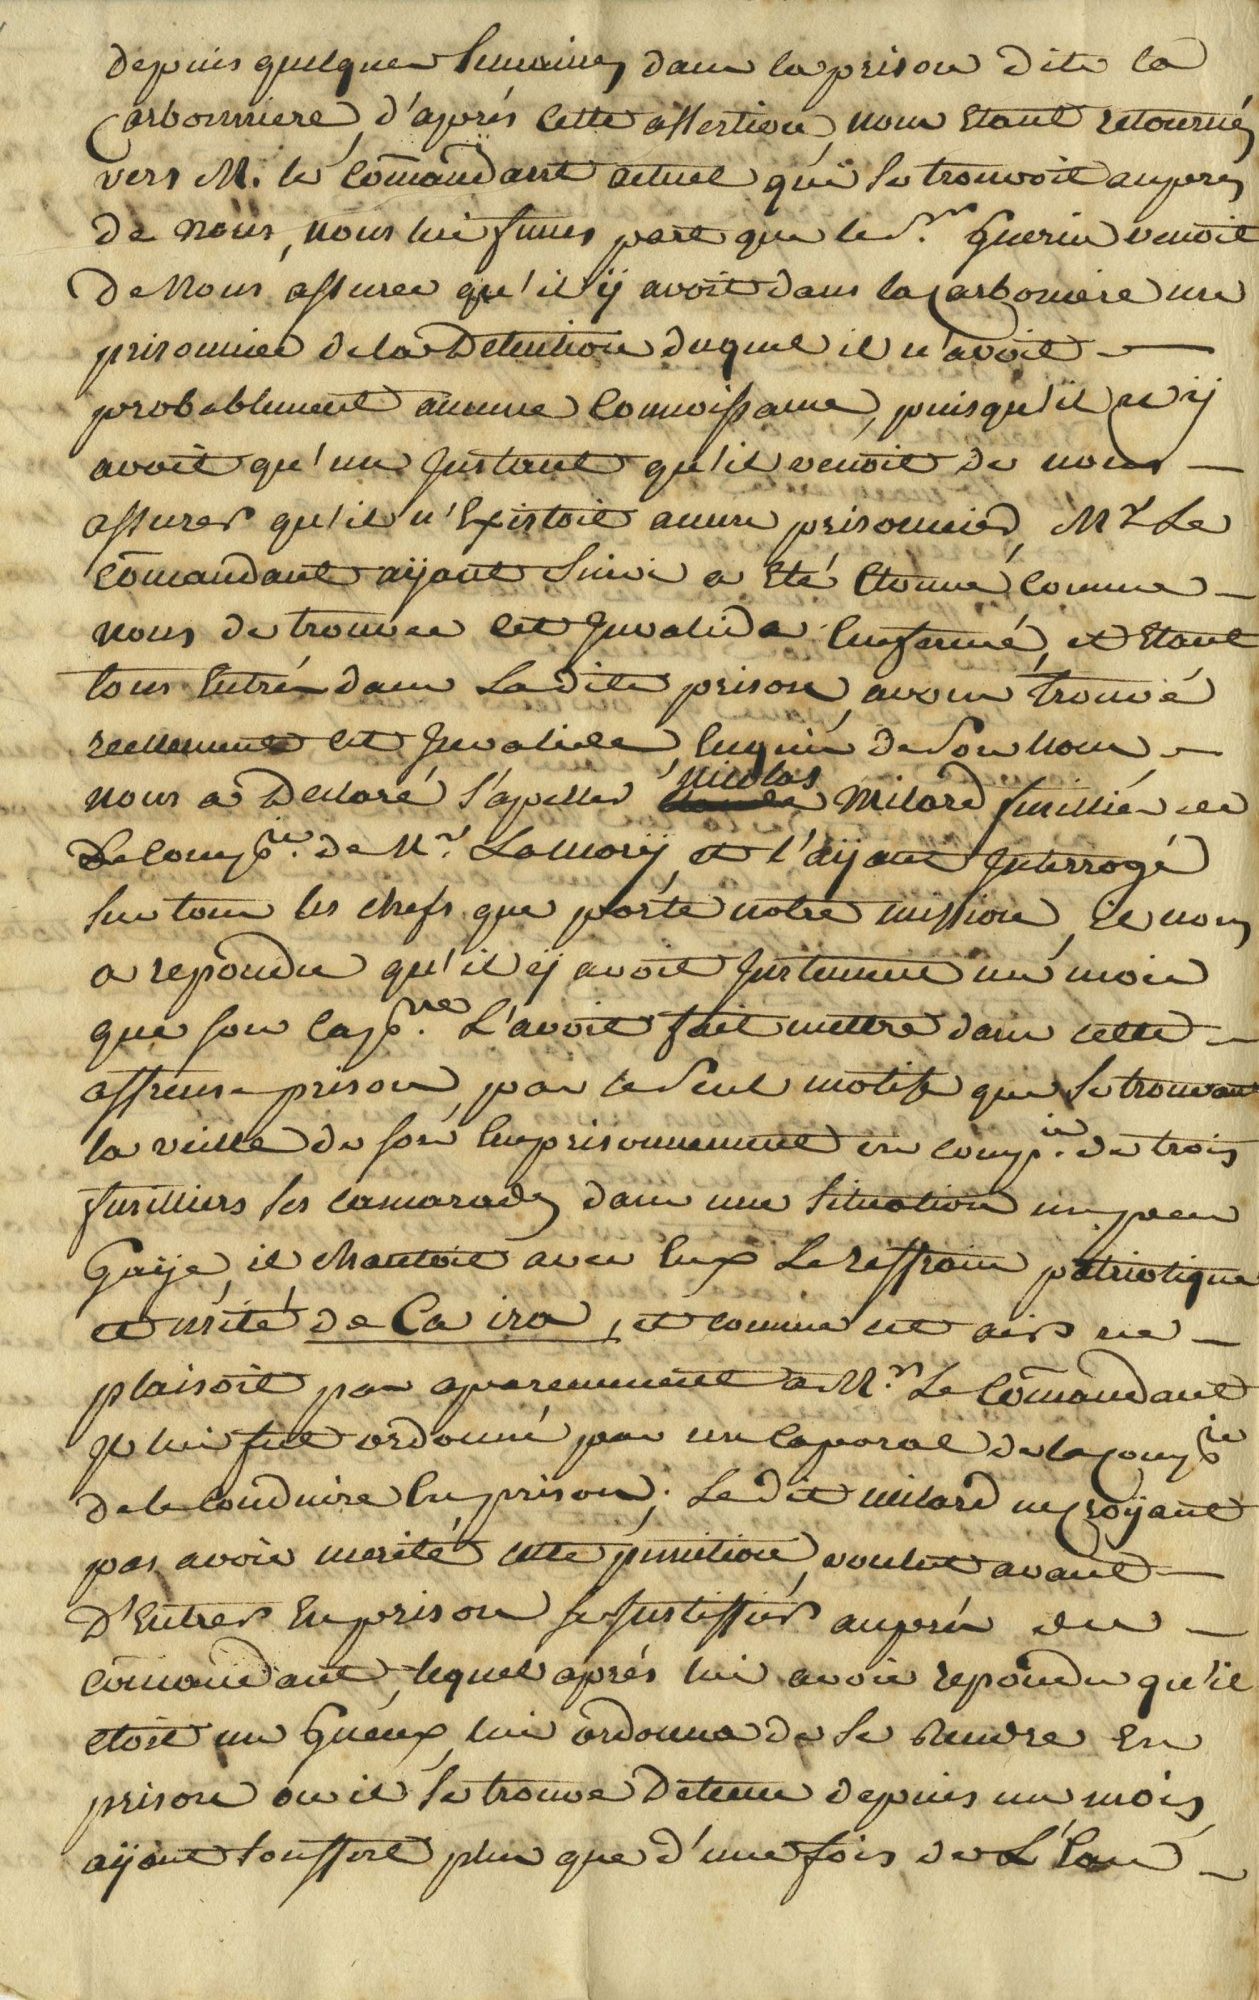 depuis quelques semaines dans la prison dite la
Carbonniere, d'après cette assertion, nous etant retournés
vers M. le Comandant actuel qui se trouvoit auprès
de nous, nous lui fimes part que le Sr. Guerin venoit
de nous assurer qu'il ÿ avoit dans la Carboniere un
prisonnier de la Detention duquel il n'avoit
probablement aucune Connoissance, puisqu'il n'ÿ
avoit qu'un Instant qu'il venoit de nous
assurer qu'il n'Existoit aucun prisonnier, Mr Le
Comandant aÿant Suivi a été Etonné comme
nous de trouver cet Invalide Enfermé, et Etant
tous Entrés dans La dite prison, avons trouvé
reellement cet Invalide Enquis de Son Nom
nous a Declaré s'apeller Nicolas Milard fusillier
De comp.ie de Mr. Lamorÿ, et l'aÿant Interrogé
Sur tous les chefs que porte notre mission, il nous
a repondu qu'il ÿ avoit Justement un mois
que son Cap.ne L'avoit fait mettre dans cette
affreuse prison par le Seul motif que Se trouvant
la veille de son Emprisonnement en comp.ie de trois
fusilliers ses camarades dans une Situation un peu
Gaÿe, il chantoit avec Eux Le reffrain patriotique
et usité de Ca ira, et comme cet air ne
plaisoit pas aparemment a Mr. Le Comandant
Il lui fut ordonné par un Caporal de la Comp.ie
de le Conduire En prison; Le dit Milard ne croÿant
pas avoir merité cette punition, voulut avant
D'Entrer En prison se Justiffier auprès du
Comandant, lequel après lui avoir repondu qu'il
etoit un Gueux, lui ordonna de Se Rendre En
prison ou il Se trouve Detenu depuis un mois,
aÿant Souffert plus que d'une fois de L'Eau